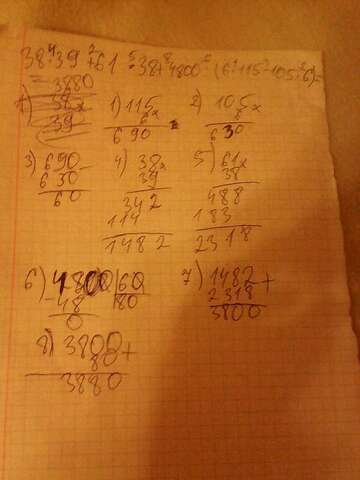 38·39+61·38+4800:(6·115-105·6)=
=3880
1) 115 x 6 690
2) 105 x 6 630
3) 690 - 630 60
4) 38 x 39 342 114 1482
5) 61 x 38 488 183 2318
6) 4800 | 60 - 48 80 0
7) 1482 + 2318 3800
8) 3800 + 80 3880